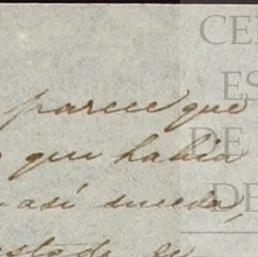 parece que
que habia
así suceda,
CE
ES
DE
DE